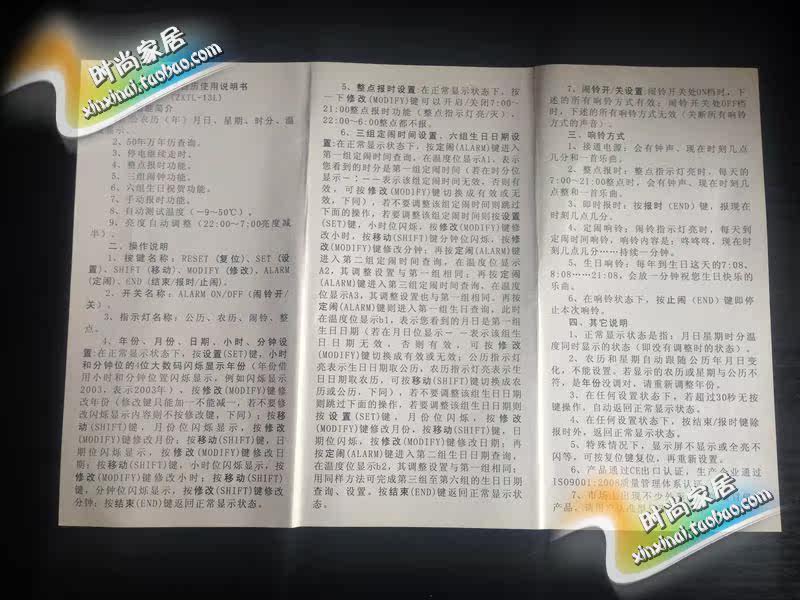 时尚家居
xinxinai.taobao.com
历使用说明书
(ZXTL-13L)
能简介
公农历（年）月日、星期、时分、温
显示。
2、50年万年历查询。
3、停电继续走时。
4、整点报时功能。
5、三组闹钟功能。
6、六组生日祝贺功能。
7、手动报时功能。
8、自动测试温度（-9~50℃）。
9、亮度自动调整（22:00~7:00亮度减
半）。
二、操作说明
1、按键名称：RESET（复位）、SET（设
置）、SHIFT（移动）、MODIFY（修改）、ALARM
（定闹）、END（结束/报时/止闹）。
2、开关名称：ALARM ON/OFF（闹铃开/
关）。
3、指示灯名称：公历、农历、闹铃、整
点。
4、年份、月份、日期、小时、分钟设
置：在正常显示状态下，按设置(SET)键，小时
和分钟位的4位大数码闪烁显示年份（年份借
用小时和分钟位置闪烁显示，例如闪烁显示
2003，表示2003年），按修改(MODIFY)键修
改年份（修改键只能加一不能减一，若不要修
改闪烁显示内容则不按修改键，下同）；按移
动(SHIFT)键，月份位闪烁显示，按修改
(MODIFY)键修改月份；按移动(SHIFT)键，日
期位闪烁显示，按修改(MODIFY)键修改日
期；按移动(SHIFT)键，小时位闪烁显示，按
修改(MODIFY)键修改小时；按移动(SHIFT)
键，分钟位闪烁显示，按修改(SHIFT)键修改
分钟；按结束(END)键返回正常显示状态。
5、整点报时设置：在正常显示状态下，按
一下修改(MODIFY)键可以开启/关闭7:00-
21:00整点报时功能（整点指示灯亮/灭），
22:00~6:00整点都不报。
6、三组定闹时间设置、六组生日日期设
置：在正常显示状态下，按定闹(ALARM)键进入
第一组定闹时间查询，在温度位显示A1，表示
您看到的时分是第一组定闹时间（若在时分位
显示－：－－表示该组定闹时间无效，否则有
效，可按修改(MODIFY)键切换成有效或无
效，下同），若不要调整该组定闹时间则跳过
下面的操作，若要调整该组定闹时间则按设置
(SET)键，小时位闪烁，按修改(MODIFY)键修
改小时，按移动(SHIFT)键分钟位闪烁，按修改
(MODIFY)键修改分钟；再按定闹(ALARM)键
进入第二组定闹时间查询，在温度位显示
A2，其调整设置与第一组相同；再按定
闹(ALARM)键进入第三组定闹时间查询，在温度位
显示A3，其调整设置也与第一组相同，再按
定闹(ALARM)键则进入第一组生日查询，此时
在温度位显示b1，表示您看到的月日是第一组
生日日期（若在月日位显示－－表示该组生
日日期无效，否则有效，可按修改
(MODIFY)键切换成有效或无效；公历指示灯
亮表示生日日期取公历，农历指示灯亮表示生
日日期取农历，可按移动(SHIFT)键切换成农
历或公历，下同），若不要调整该组生日日期
则跳过下面的操作，若要调整该组生日日期则
按设置(SET)键，月份位闪烁，按修改
(MODIFY)键修改月份，按移动(SHIFT)键，日
期位闪烁，按修改(MODIFY)键修改日期；再
按定闹(ALARM)键进入第二组生日日期查询，
在温度位显示b2，其调整设置与第一组相同；
用同样方法可完成第三组至第六组的生日日期
查询、设置。按结束(END)键返回正常显示状
态。
7、闹铃开/关设置：闹铃开关处ON档时，下
述的所有响铃方式有效；闹铃开关处OFF档
时，下述的所有响铃方式无效（关断所有响铃
方式的声音）。
三、响铃方式
1、接通电源：会有钟声、现在时刻几点
几分和一首乐曲。
2、整点报时：整点指示灯亮时，每天的
7:00~21:00整点时，会有钟声、现在时刻几
点整和一首乐曲。
3、即时报时：按报时（END）键，报现在
时刻几点几分。
4、定闹响铃：闹铃指示灯亮时，每天到
定闹时间响铃，响铃内容是：咚咚咚，现在时
刻几点几分……持续一分钟。
5、生日响铃：每年到生日这天的7:08、
8:08……21:08，会放一分钟祝您生日快乐的
乐曲。
6、在响铃状态下，按止闹（END）键即停
止本次响铃。
四、其它说明
1、正常显示状态是指：月日星期时分温
度同时显示的状态（即没有调整时的状态）。
2、农历和星期自动跟随公历年月日变
化，不能设置。若显示的农历或星期与公历不
符，是年份没调对，请重新调整年份。
3、在任何设置状态下，若超过30秒无按
键操作，自动返回正常显示状态。
4、在任何设置状态下，按结束/报时键除
报时外，返回正常显示状态。
5、特殊情况下，显示屏不显示或全亮不
闪等，可按复位键复位，再重新设置。
6、产品通过CE出口认证，生产企业通过
ISO9001:2008质量管理体系认证。
7、市场上出现不少外
产品，请用户认准
时尚家居
xinxinai.taobao.com